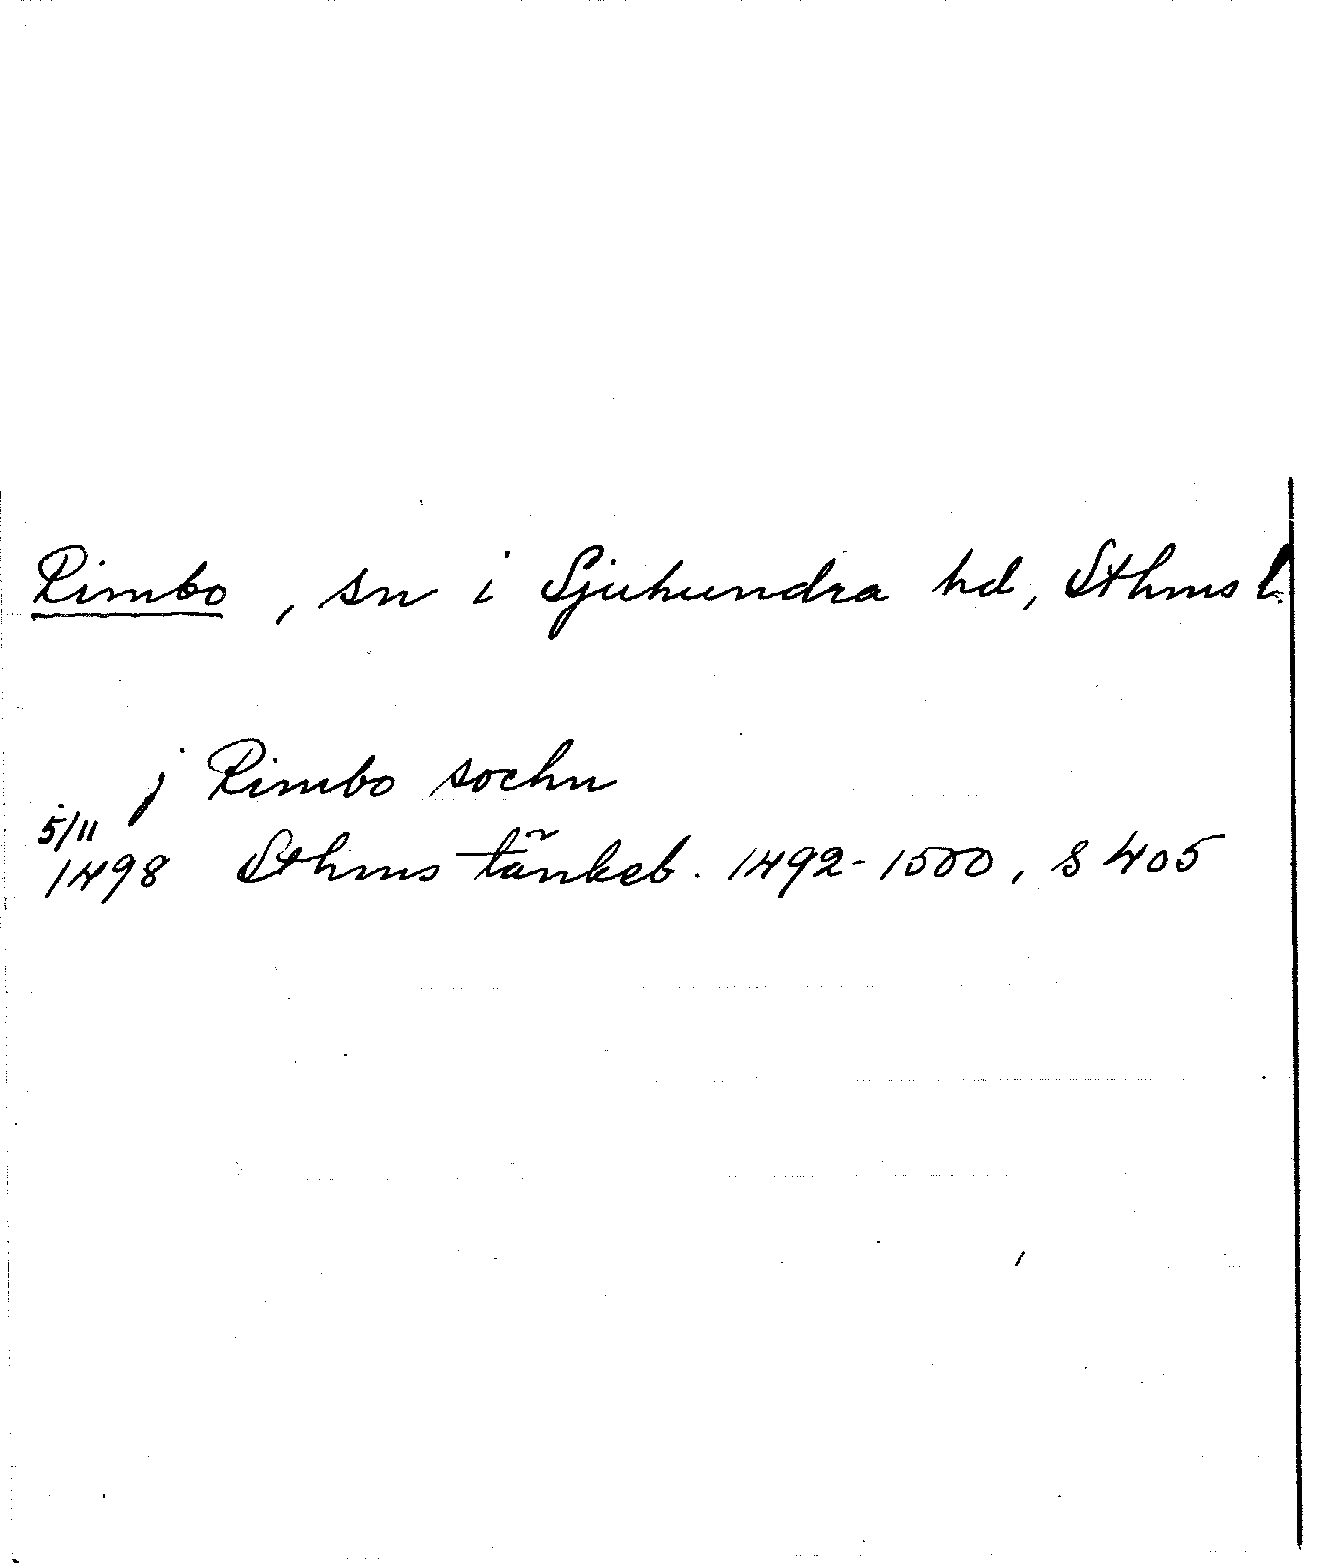 Rimbo, sn i Sjuhundra hd, Sthms l.
j Rimbo sochn
5/11
1498 Sthms tänkeb. 1492-1500, s 405